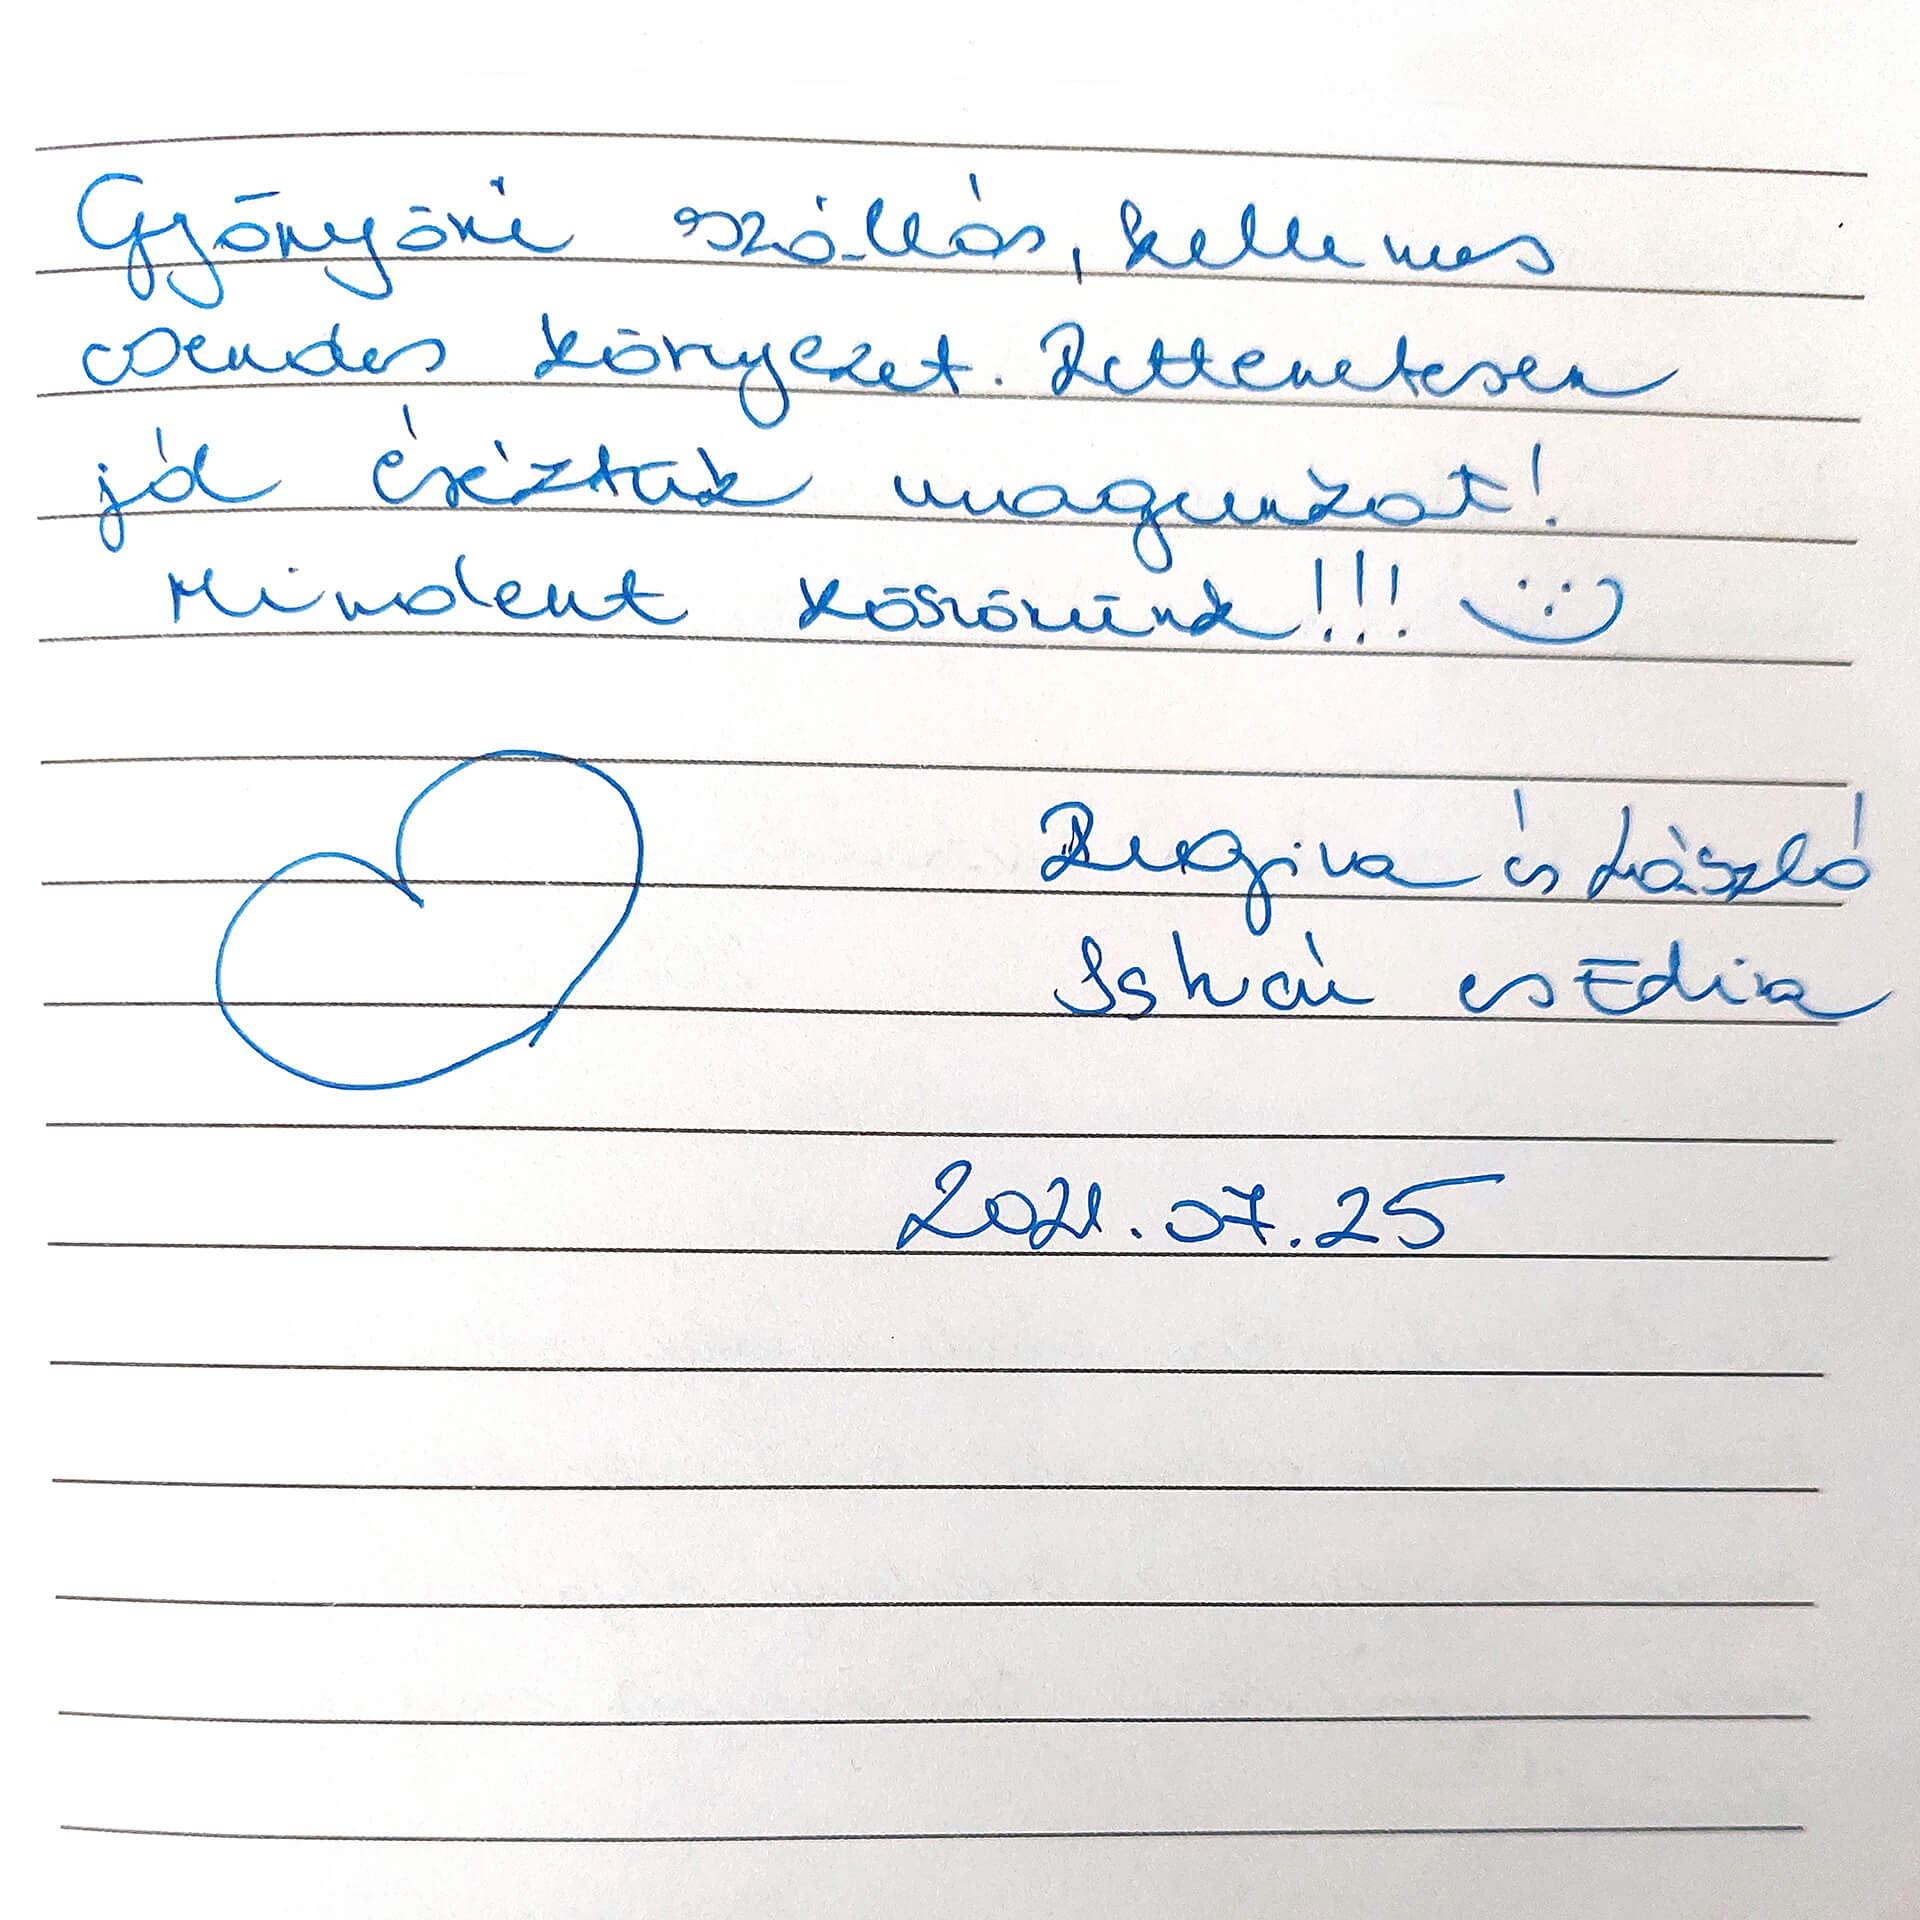 Gyönyörű szóllás, kellemes
csendes környezet. Rettenetesen
jól éréztük magunkat!
Mindent köszönünk!!!
Regina és László
István es Edina
2021.07.25